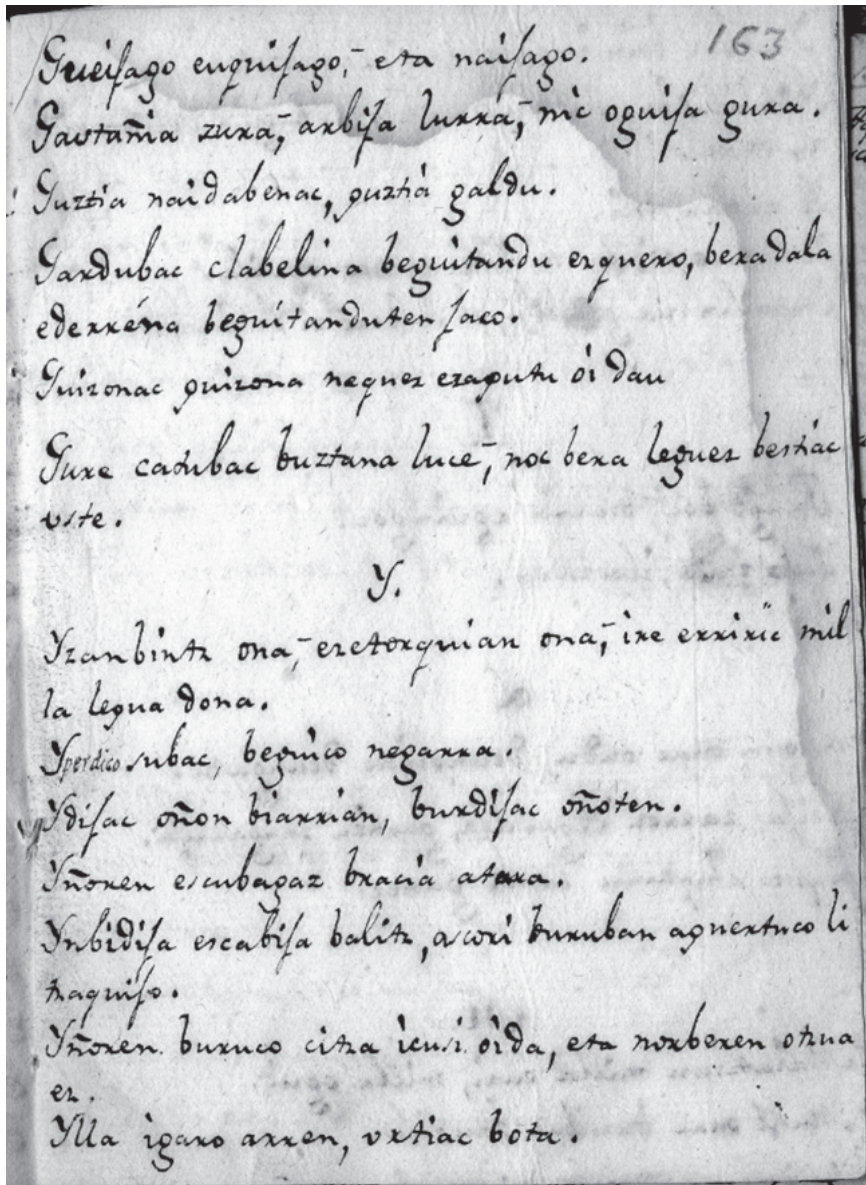 163
Gueisago euquisago, eta naisago.
Gaotañia zura, arbisa lurra, nic oguisa gura.
Guztia naidabenac, guztia galdu.
Gardubac clabelina beguitandu ezquero, beradala
ederréna beguitanduten jaco.
Guizonac guizona nequez ezagutu oi dau
Gure catubac buztana luce, noc bera leguez bestiac
uste.
Y.
Yzanbintz ona, ezetorquian ona, ire erriric mil
la legua dona.
Yperdico subac, beguico negarra.
Ydisac oñon biarrian, burdisac oñoten.
Yñoren escubagaz bracia atara.
Ynbidisa escabisa balitz, ascori buruban aguertuco li
tzaquiso.
Yñoren buruco citza icusi oida, eta norberen otzua
ez.
Ylla igaro arren, urtiac bota.